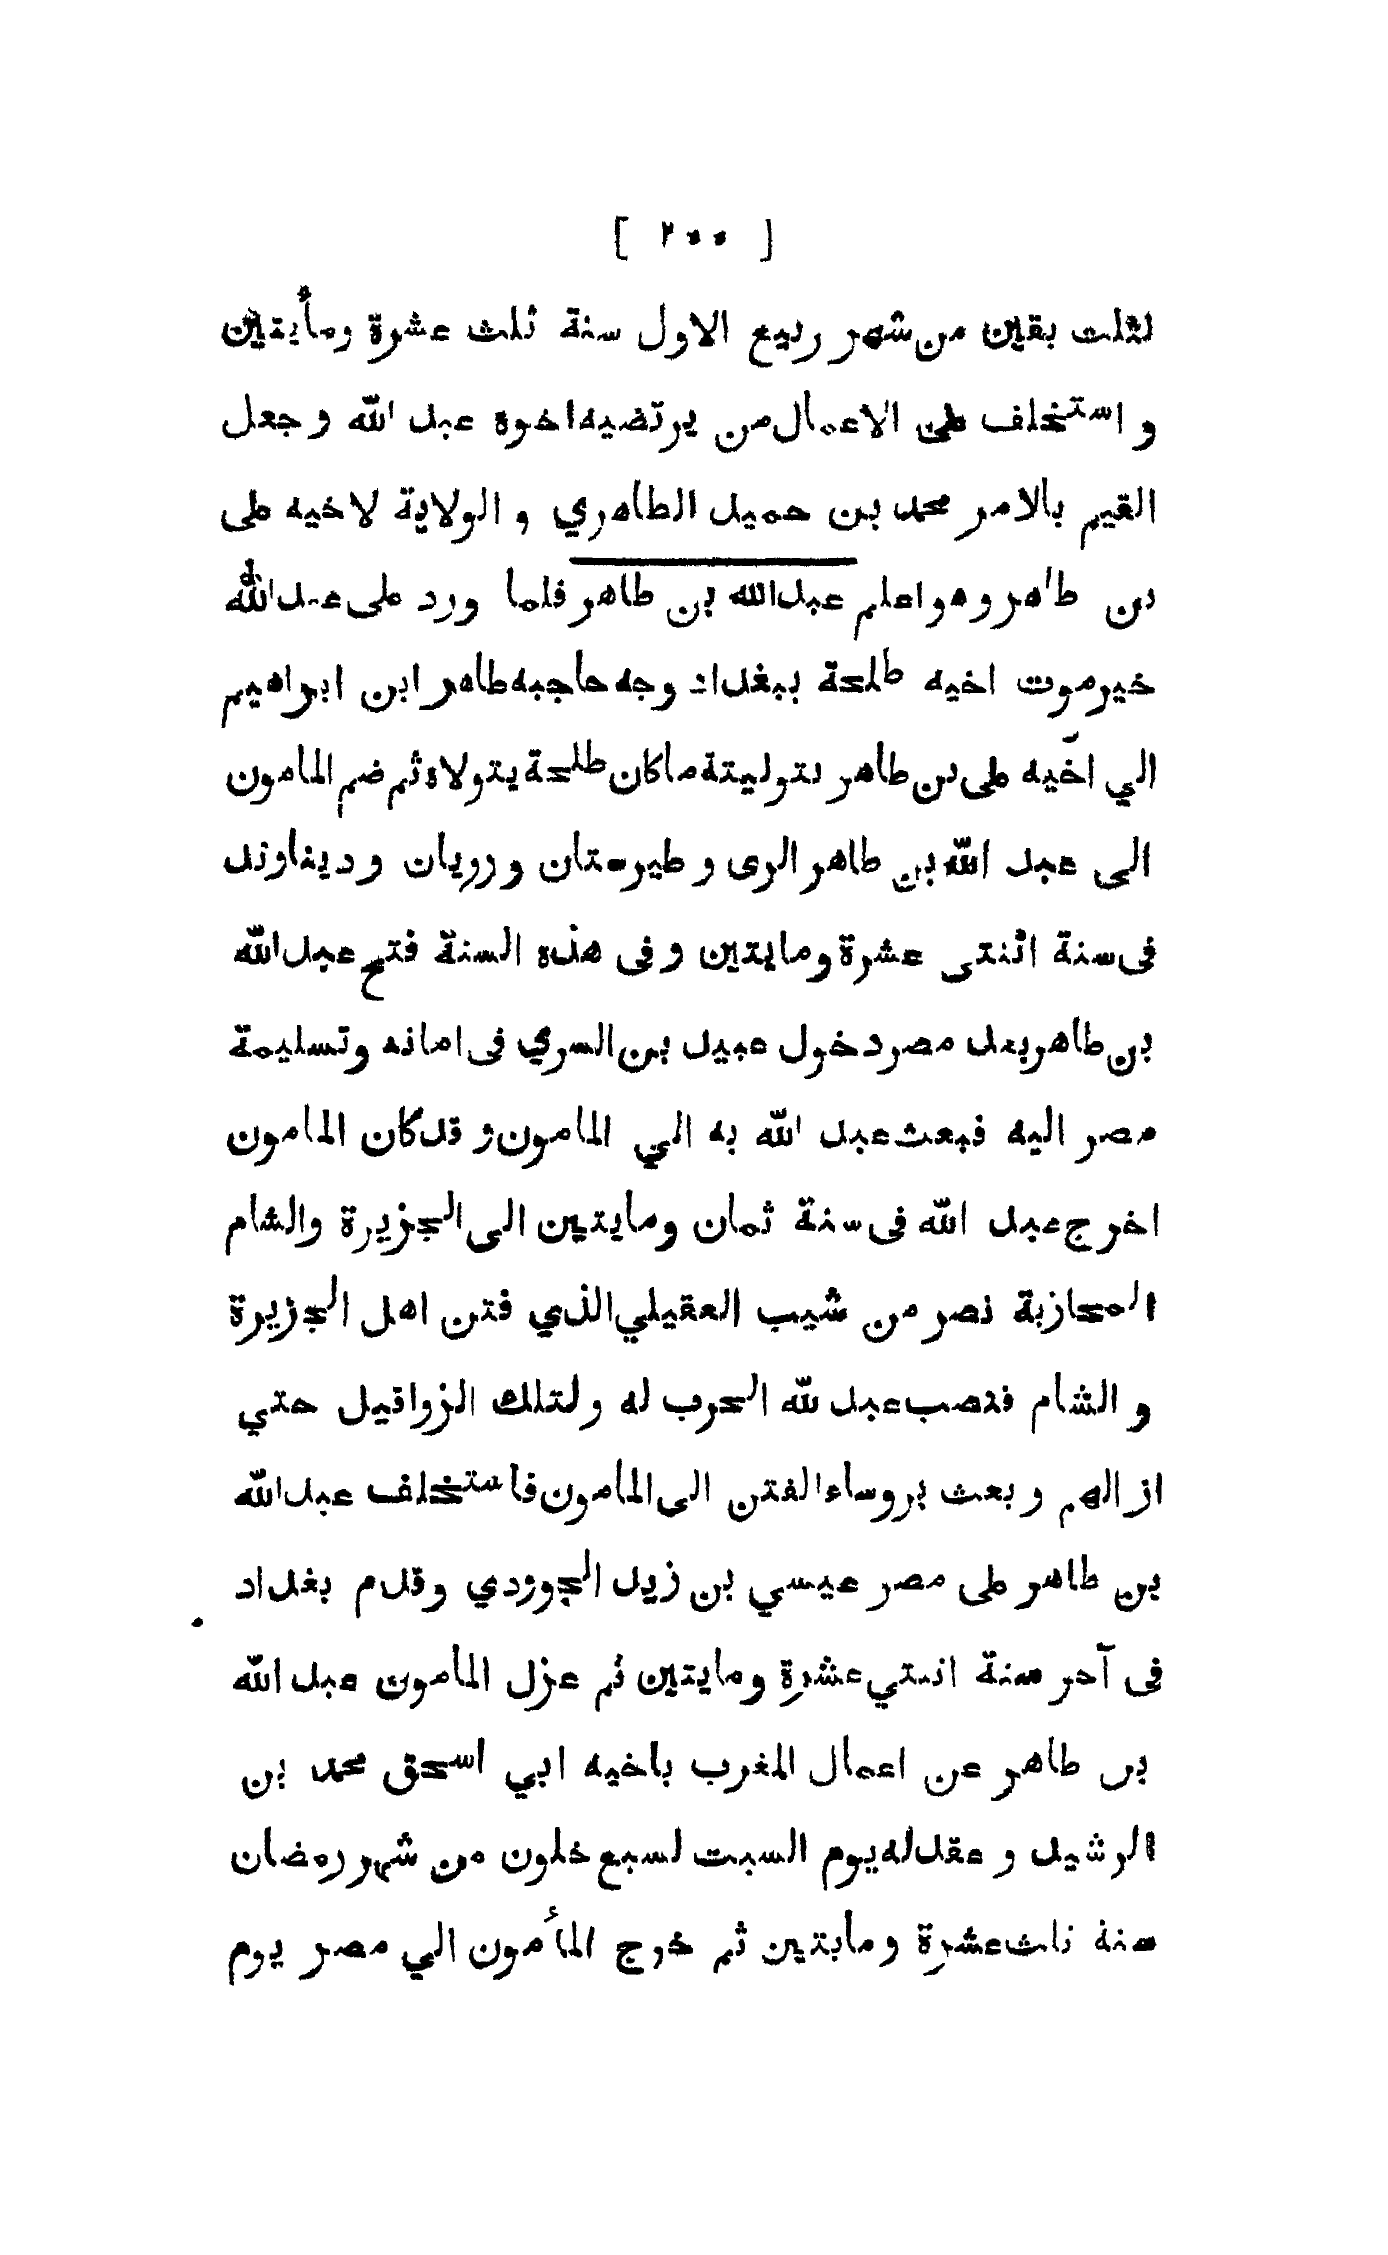 [ ٢٠٠ ]
لثلث بقين من شهر ربيع الاول سنة ثلث عشرة ومأيتين
و استخلف على الاعمال من يرتضيه اخوة عبد الله و جعل
القيم بالامر محمد بن حميد الطاهري و الولاية لاخيه على
بن طاهر وهو اعلم عبدالله بن طاهر فلما ورد على عبدالله
خبر موت اخيه طلحة ببغداد وجه حاجبه طاهر ابن ابراهيم
الي اخيه على بن طاهر بتوليتة ماكان طلحة يتولاه ثم ضم المامون
الى عبد الله بن طاهر الرى و طبرستان و رويان و ديناوند
فى سنة اثنتى عشرة ومايتين و فى هذه السنة فتح عبدالله
بن طاهر بعد مصر دخول عبيد بن السري فى امانه وتسليمة
مصر اليه فبعث عبد الله به الي المامون و قدكان المامون
اخرج عبد الله فى سنة ثمان ومايتين الى الجزيرة والشام
المحاربة نصر من شيب العقيلي الذي فتن اهل الجزيرة
و الشام فنصب عبد لله الحرب له ولتلك الزواقيل حتي
ازالهم و بعث بروساء الفتن الى المامون فاستخلف عبدالله
بن طاهر على مصر عيسي بن زيد الجوزدي وقدم بغداد
فى آخر سنة اثنتي عشرة ومايتين ثم عزل المامون عبد الله
بن طاهر عن اعمال المغرب باخيه ابي اسحق محمد بن
الرشيد و عقدله يوم السبت لسبع خلون من شهر رمضان
سنة ثلث عشرة ومايتين ثم خرج المأمون الي مصر يوم